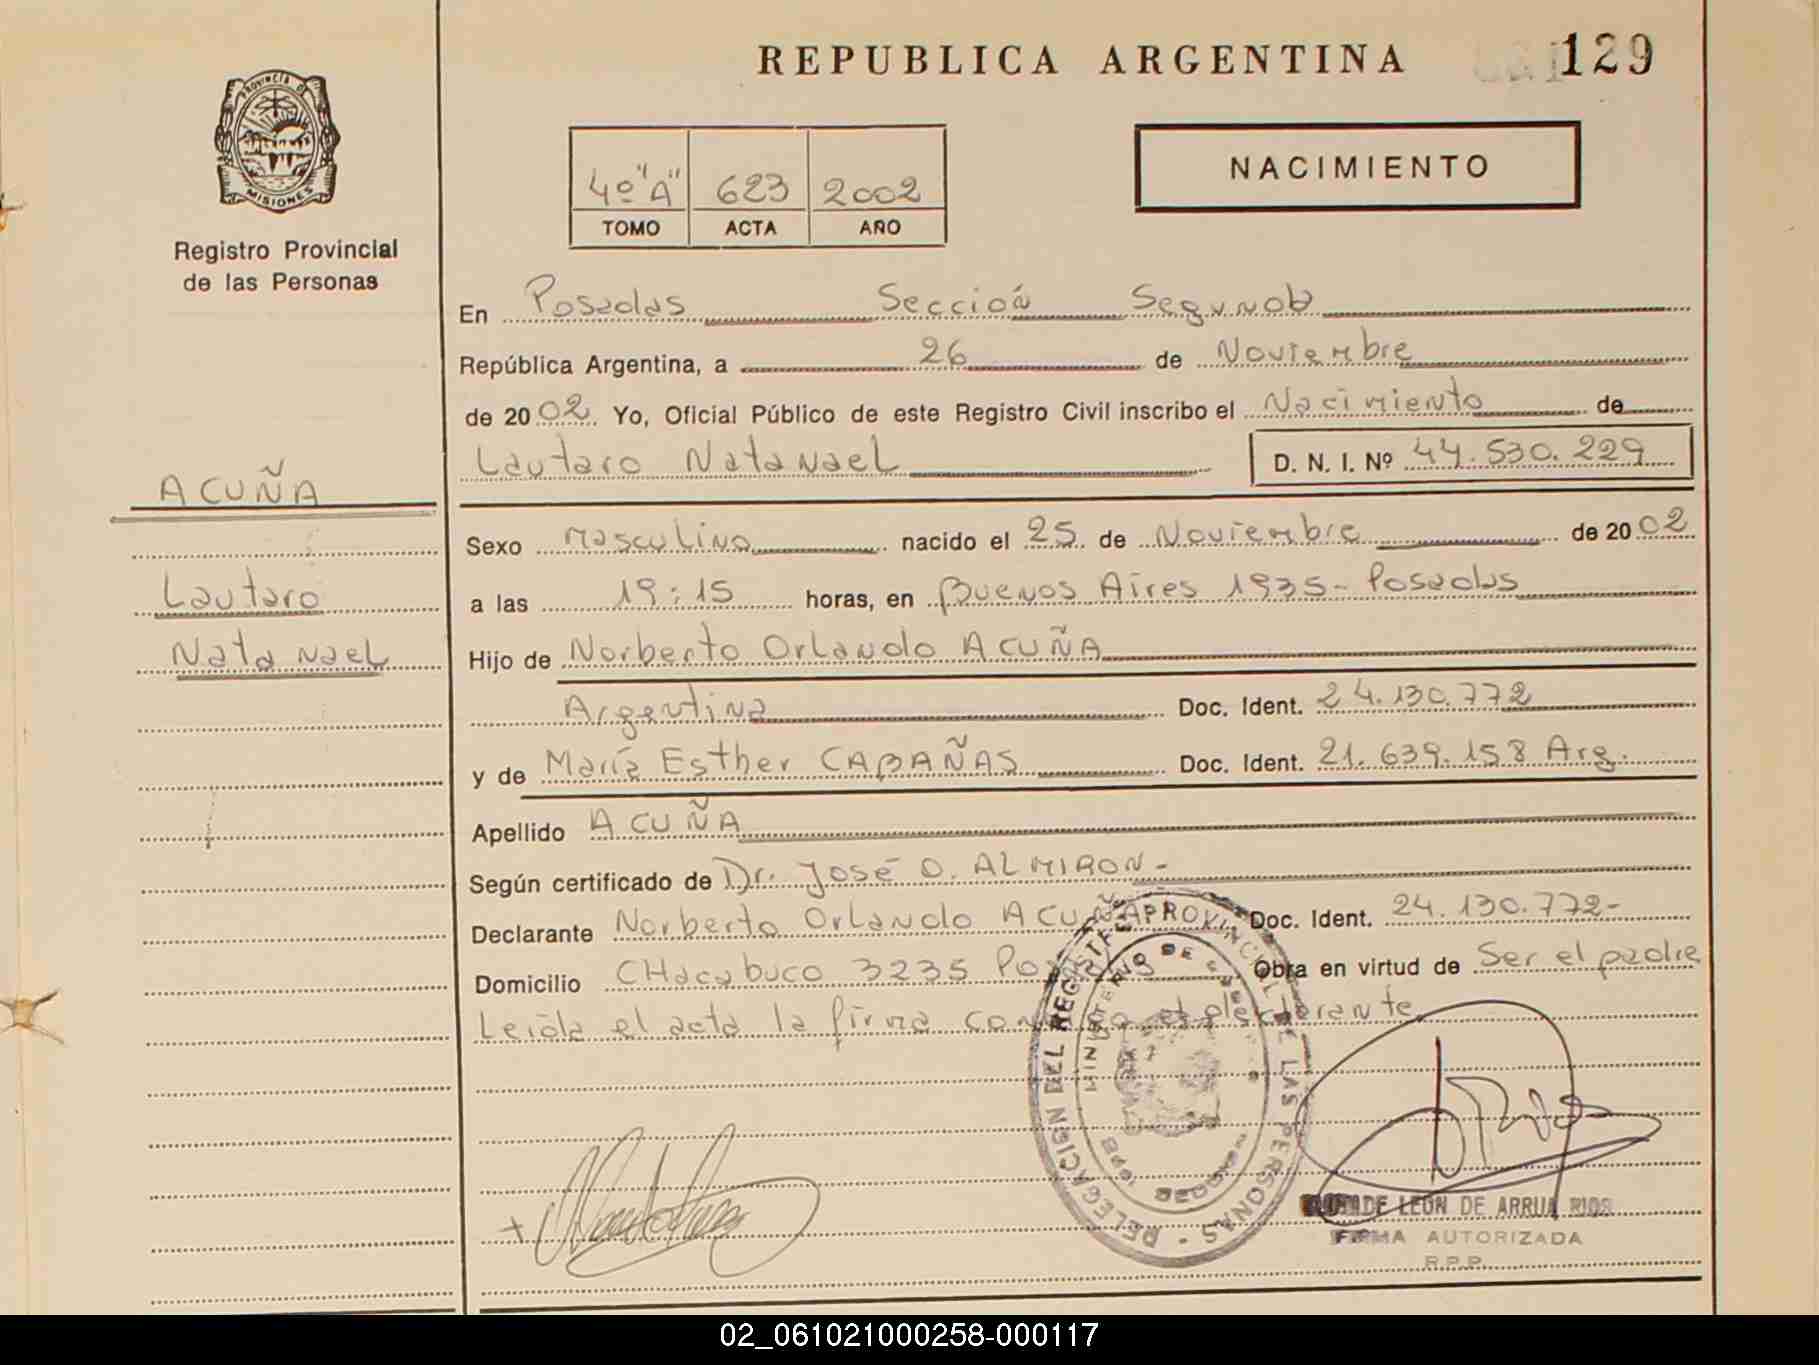 REPUBLICA ARGENTINA 129
PROVINCIA DE
MISIONES
Registro Provincial
de las Personas
4º "A" 623 2002
TOMO ACTA AÑO
NACIMIENTO
En Posadas Sección Segunda
República Argentina, a 26 de Noviembre
de 2002 Yo, Oficial Público de este Registro Civil inscribo el Nacimiento de
Lautaro Natanael D. N. I. Nº 44.530.229
ACUÑA
Lautaro
Natanael
Sexo Masculino nacido el 25 de Noviembre de 2002
a las 19:15 horas, en Buenos Aires 1935- Posadas
Hijo de Norberto Orlando ACUÑA
Argentina Doc. Ident. 24.130.772
y de María Esther CABAÑAS Doc. Ident. 21.639.158 Arg.
Apellido ACUÑA
Según certificado de Dr. José O. ALMIRON-
Declarante Norberto Orlando ACUÑA Doc. Ident. 24.130.772-
Domicilio CHacabuco 3235 Posadas Obra en virtud de Ser el padre
Leida el acta la firma conmigo el declarante.
DELEGACION DEL REGISTRO PROVINCIAL DE LAS PERSONAS
MINISTERIO DE GOBIERNO
POSADAS
DE LEON DE ARRUA RIOS
FIRMA AUTORIZADA
R.P.P.
02_061021000258-000117